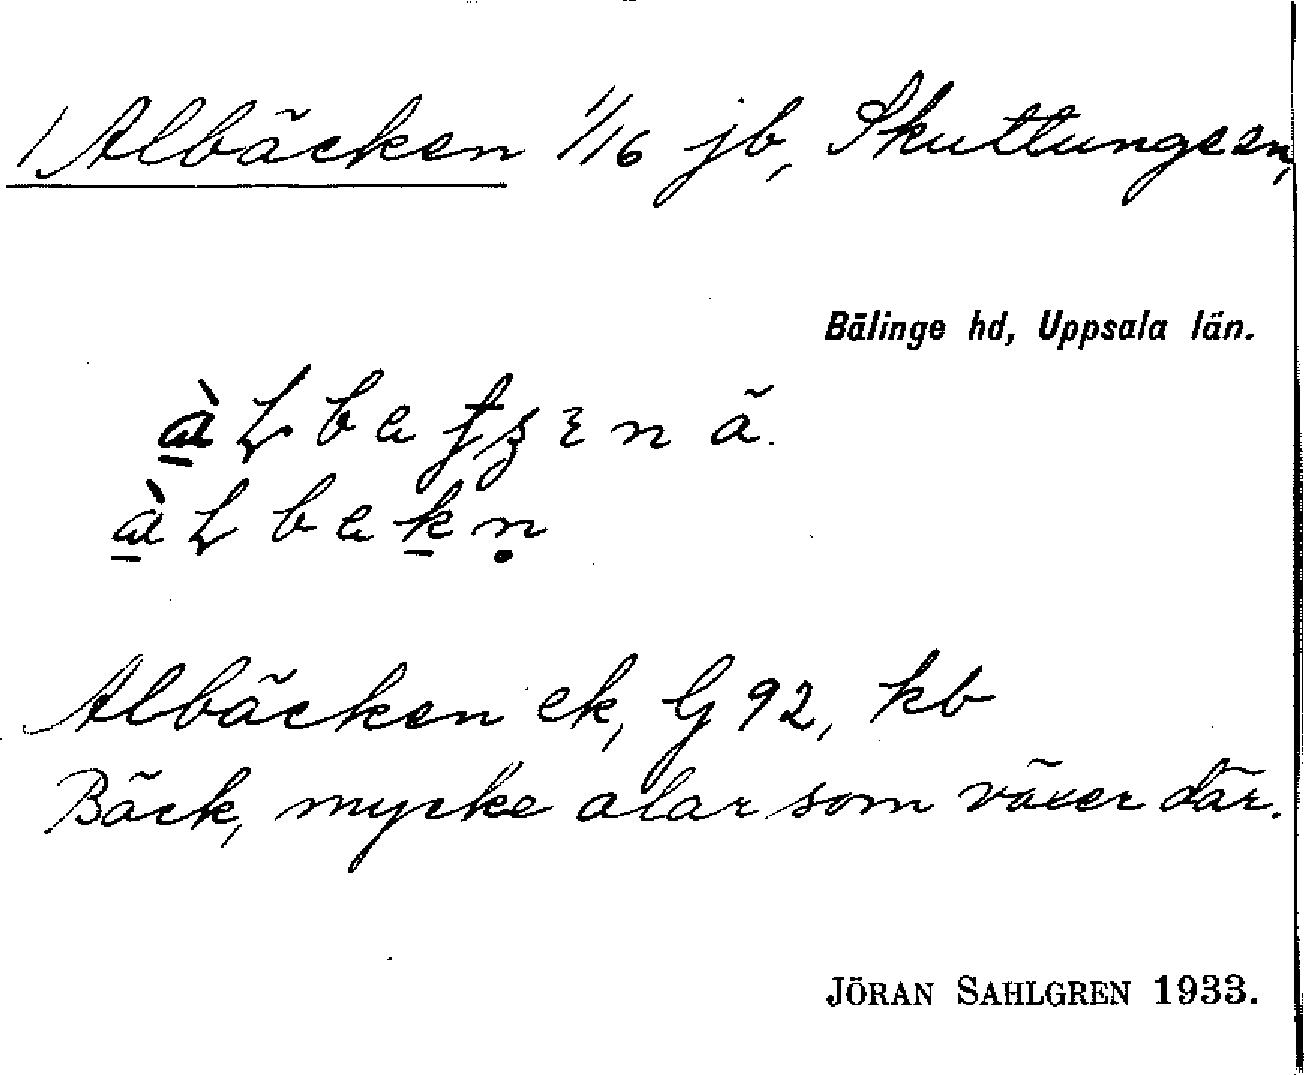 1 Albäcken 1/16 jb, Skuttunge sn,
Bälinge hd, Uppsala län.
ä.
Albäcken ek, G 92, kb
Bäck, mycke alar som växer där.
JÖRAN SAHLGREN 1933.